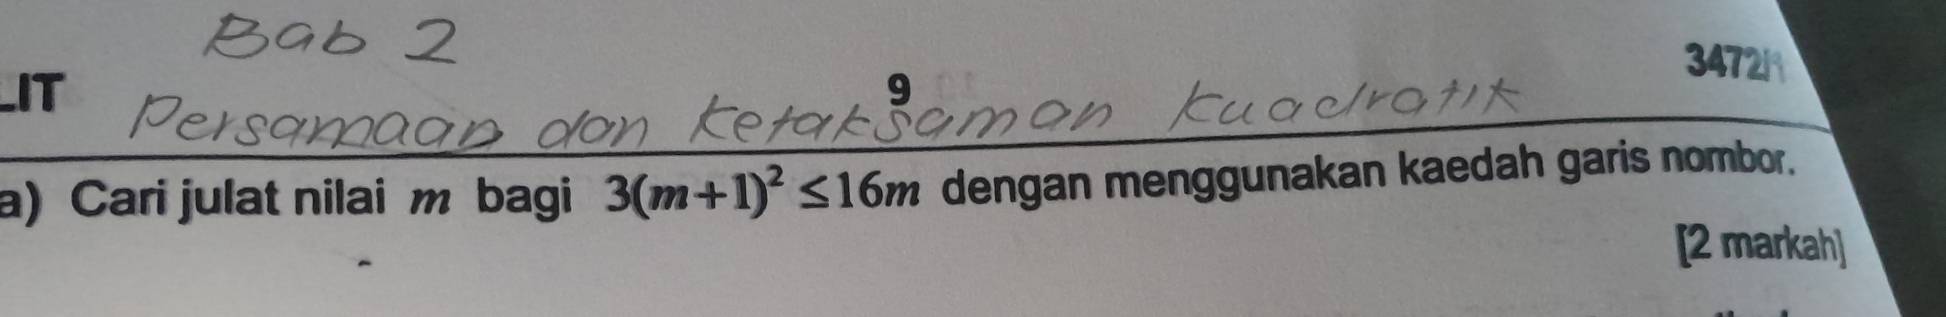 Bab 2
LIT 9 3472/1
Persamaan dan Ketaksaman Kuadratik
a) Cari julat nilai m bagi 3(m+1)² ≤ 16m dengan menggunakan kaedah garis nombor.
[2 markah]